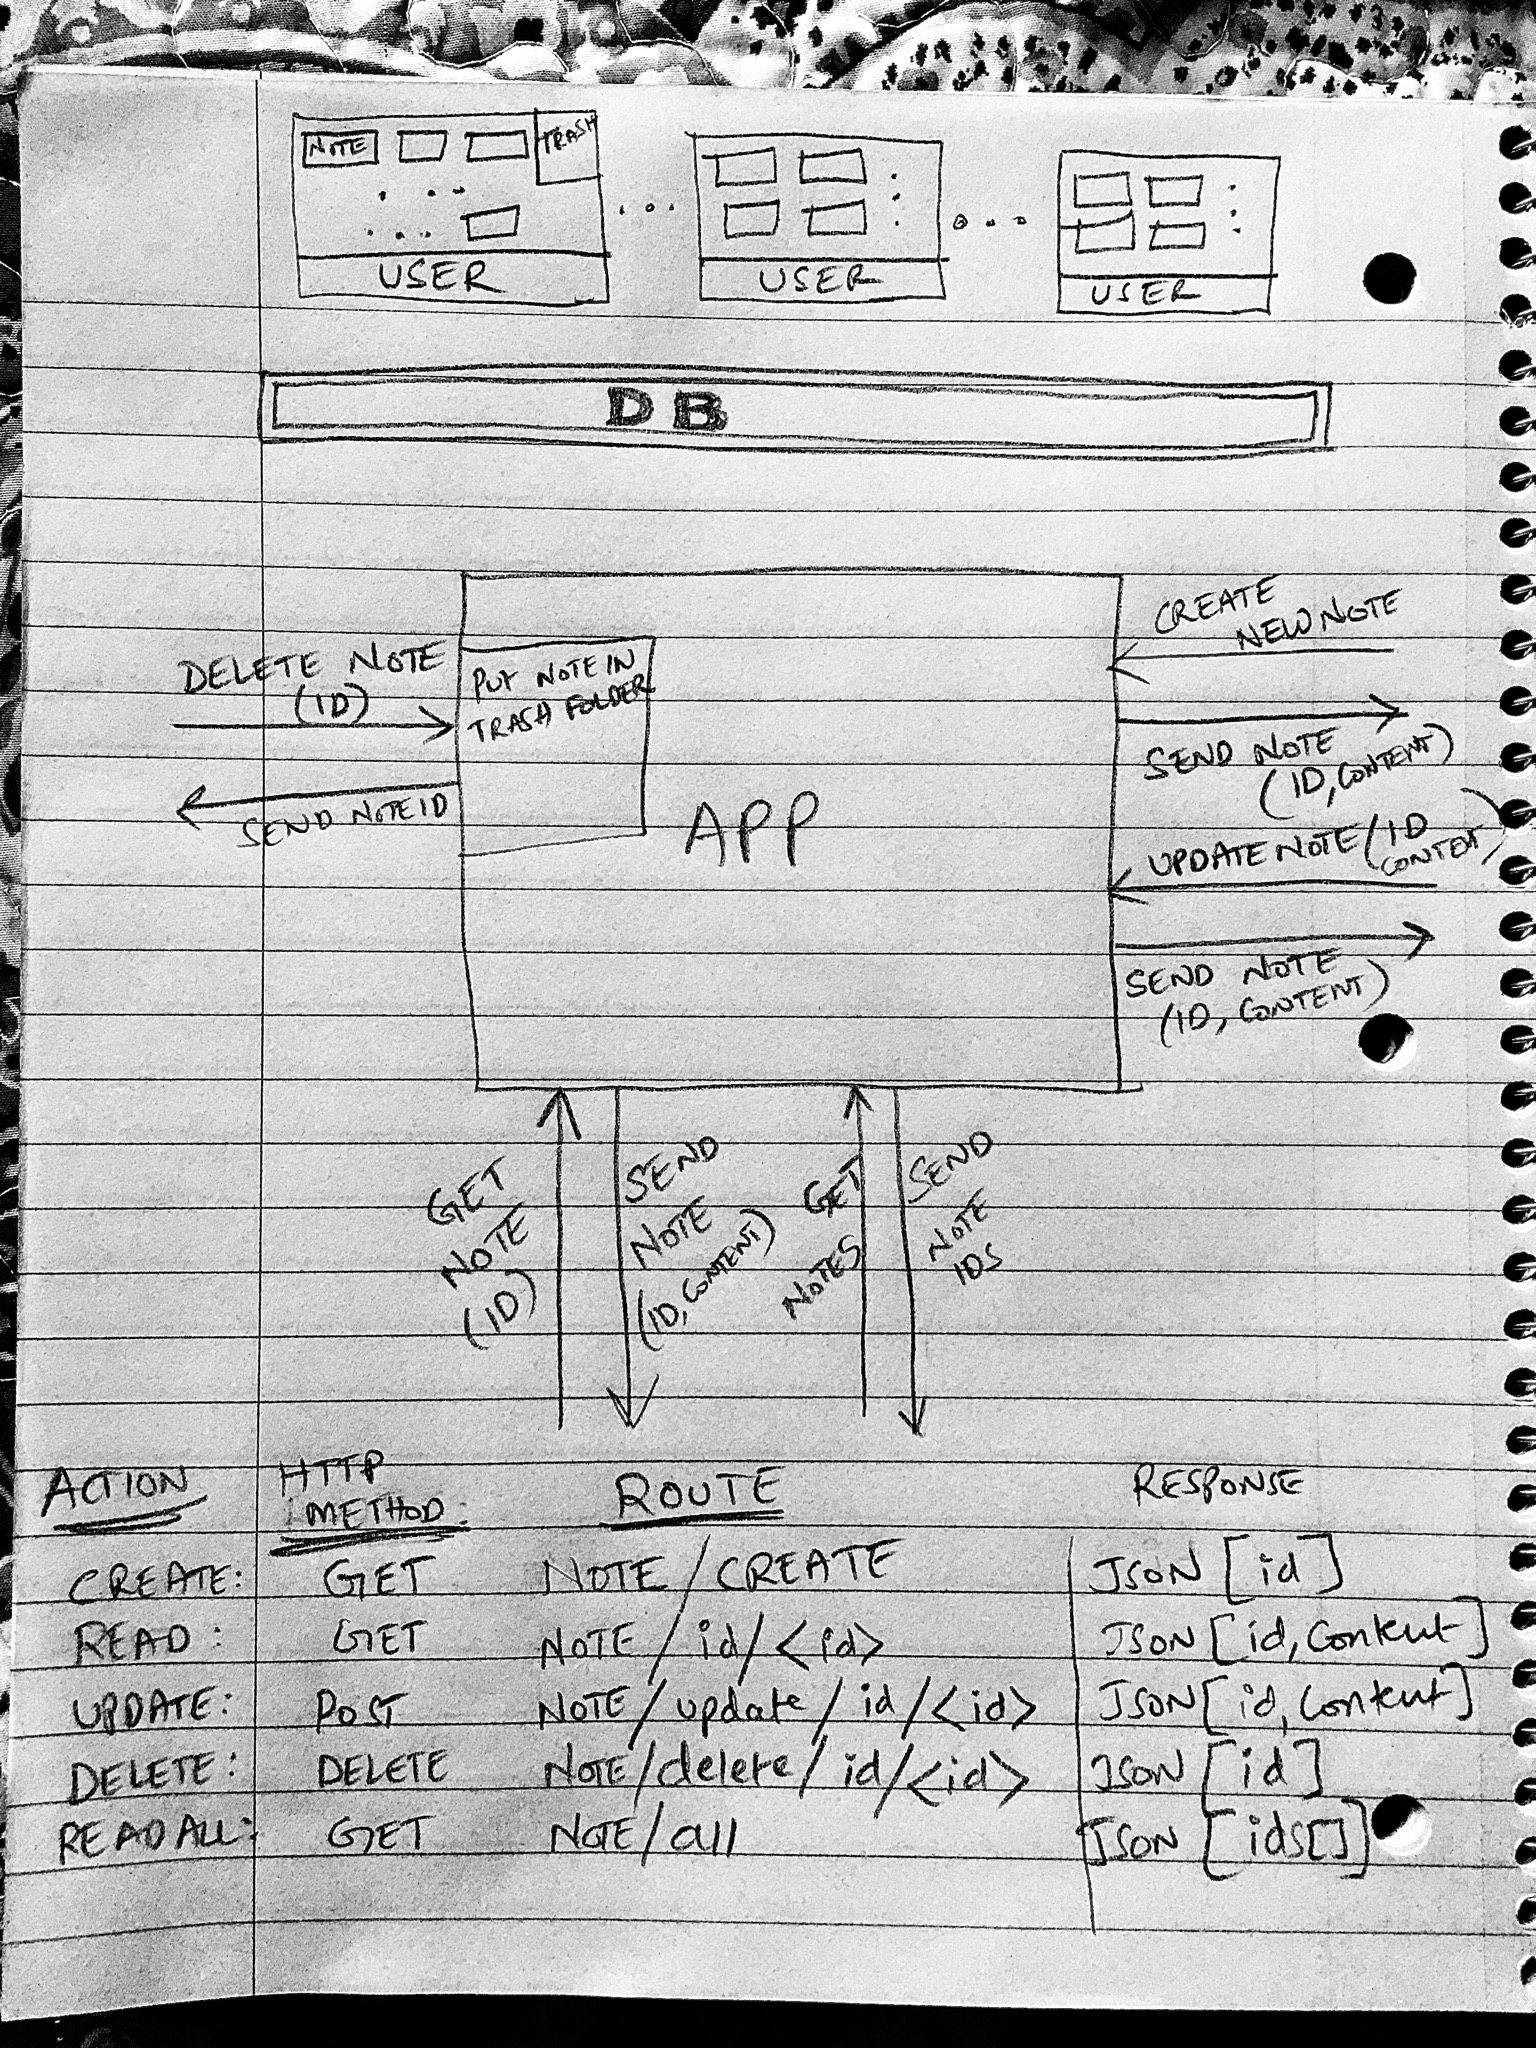 NOTE TRASH
USER
USER
USER
DB
DELETE NOTE
(ID)
SEND NOTE ID
PUT NOTE IN
TRASH FOLDER
APP
CREATE
NEW NOTE
SEND NOTE
(ID, CONTENT)
UPDATE NOTE (ID
CONTENT)
SEND NOTE
(ID, CONTENT)
GET
NOTE
(ID)
SEND
NOTE
(ID, CONTENT)
GET
NOTES
SEND
NOTE
IDS
ACTION HTTP METHOD: ROUTE RESPONSE
CREATE: GET NOTE / CREATE JSON [id]
READ: GET NOTE / id / <id> JSON [id, Content]
UPDATE: POST NOTE / update / id / <id> JSON [id, Content]
DELETE: DELETE NOTE / delete / id / <id> JSON [id]
READ ALL: GET NOTE / all JSON [ids[]]